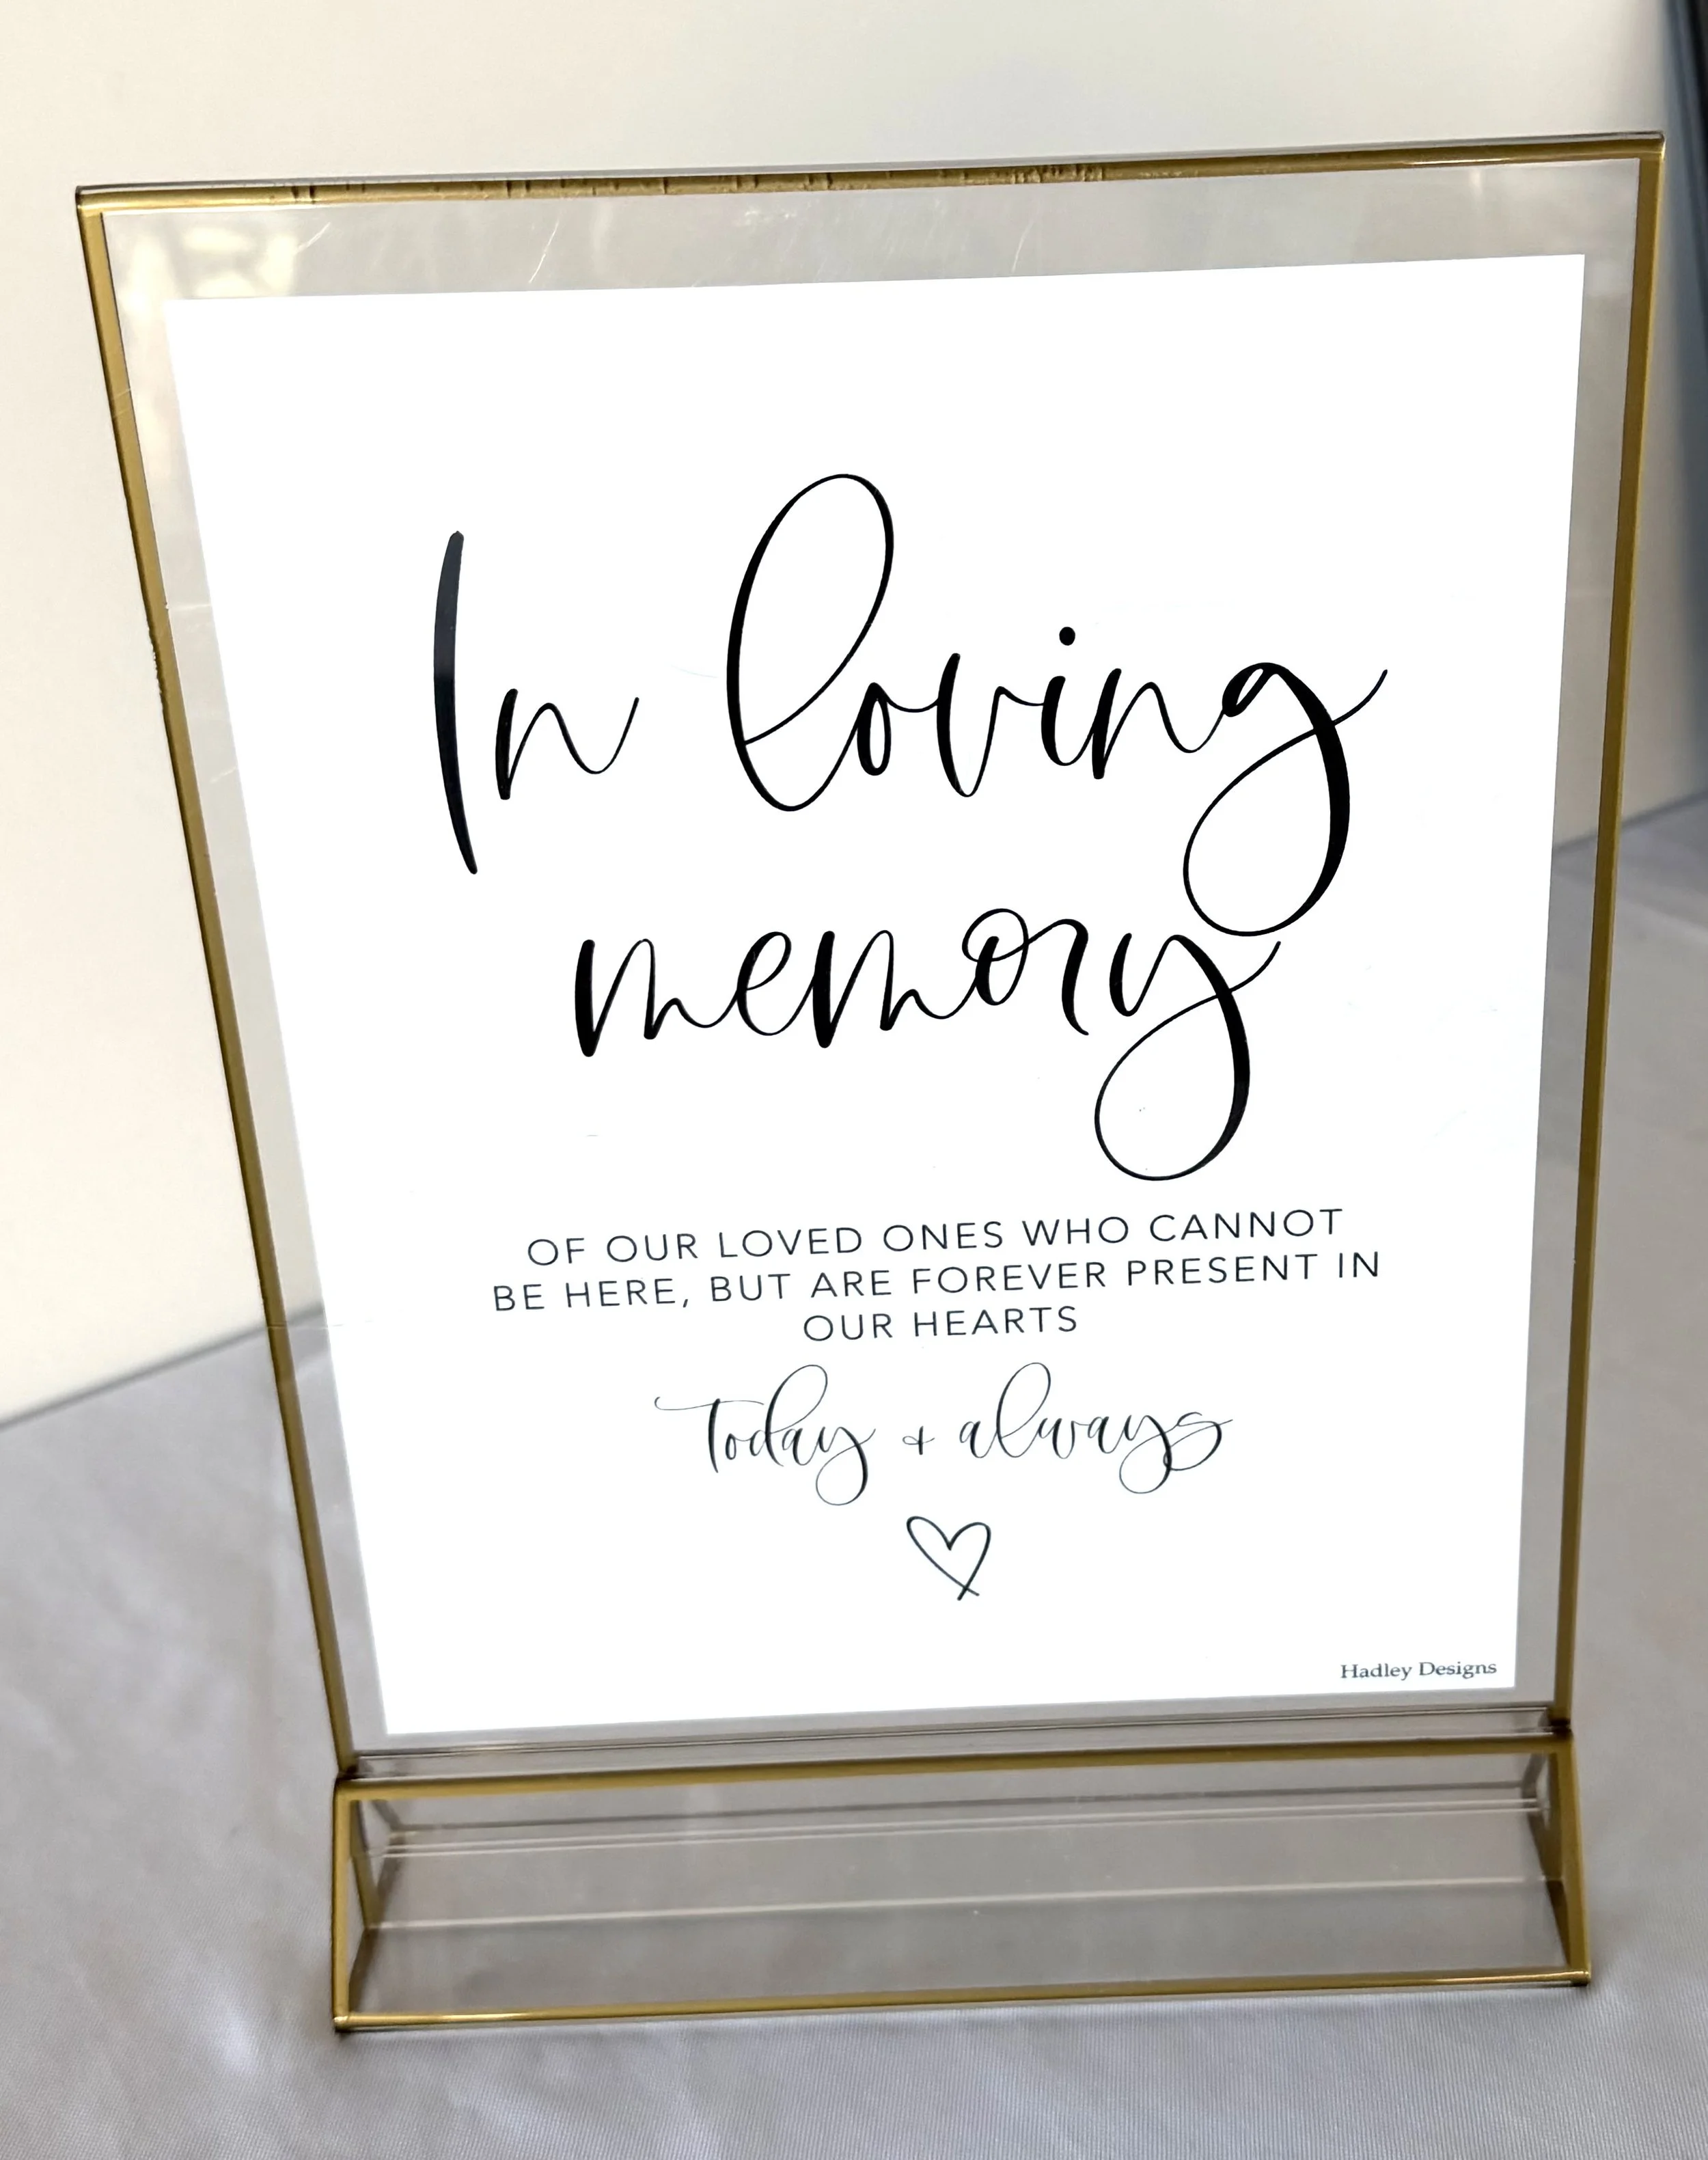 In loving
memory
OF OUR LOVED ONES WHO CANNOT
BE HERE, BUT ARE FOREVER PRESENT IN
OUR HEARTS
today + always
Hadley Designs